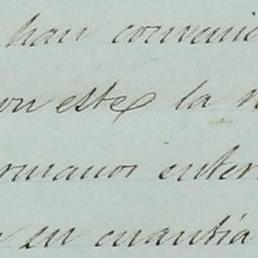 han conveni
on este la
rmanos enter
en cuantía